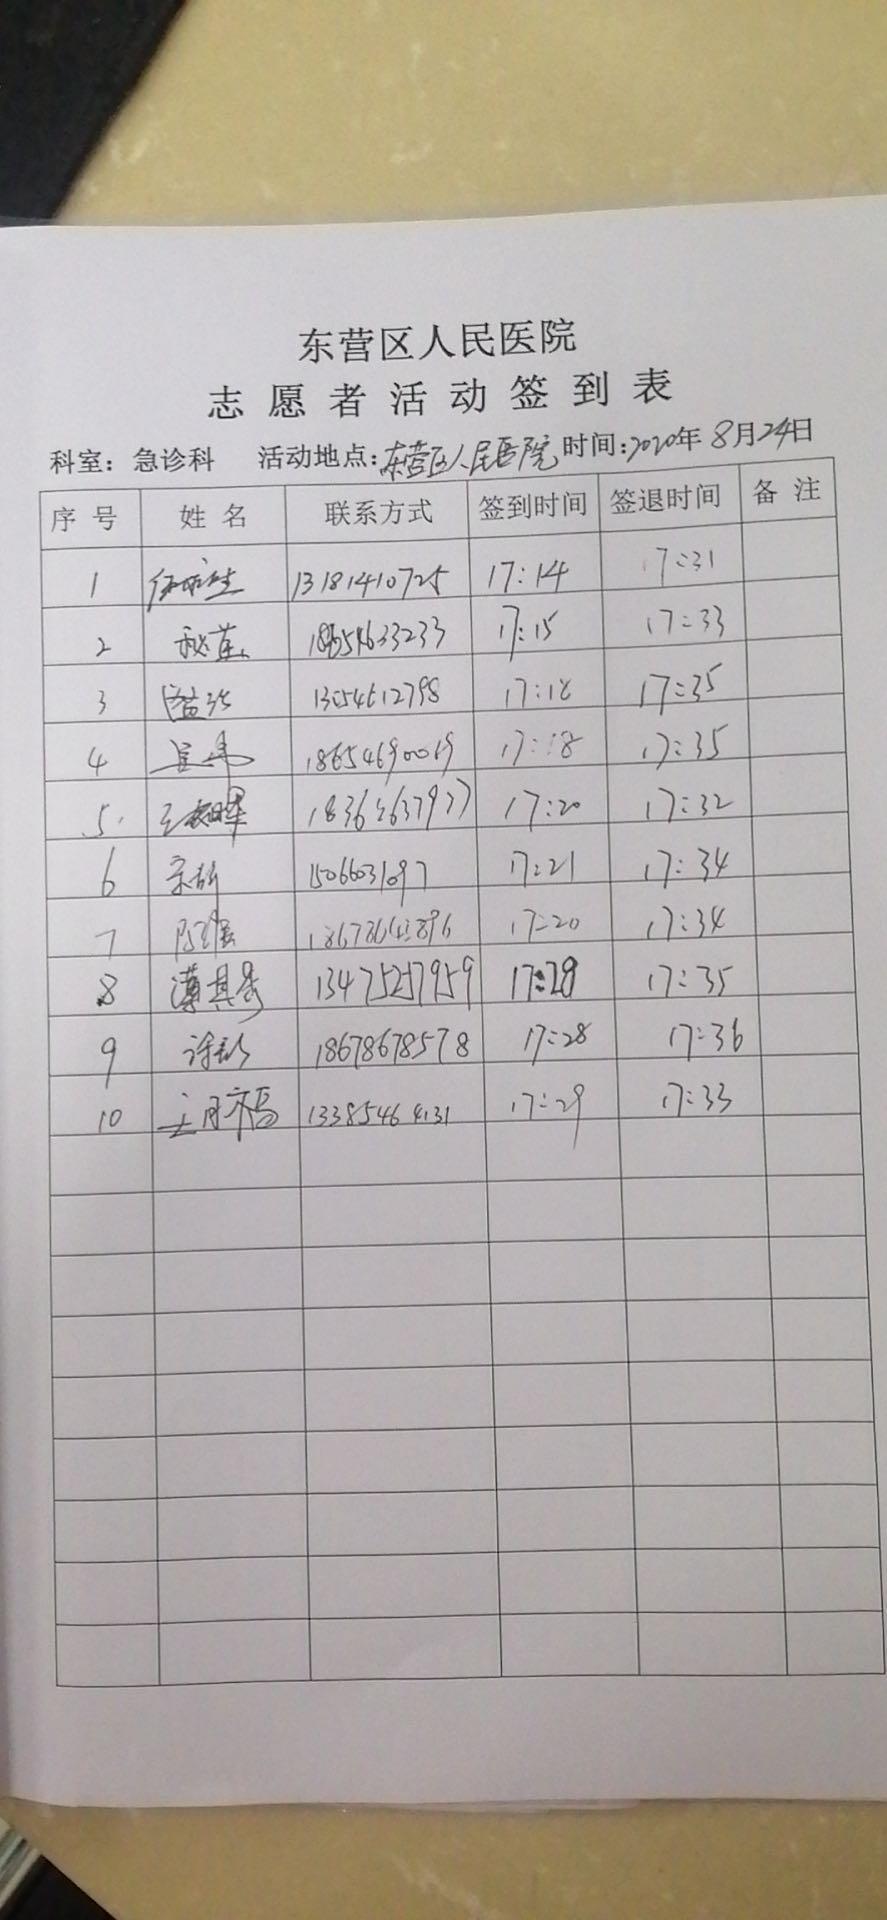 东营区人民医院
志愿者活动签到表
科室：急诊科 活动地点:东营区人民医院 时间:2020年8月24日
序号 姓名 联系方式 签到时间 签退时间 备注
1 13181410725 17:14 17:31
2 秘莲 18654633233 17:15 17:33
3 13054612798 17:18 17:35
4 18654690069 17:18 17:35
5. 17:20 17:32
6 15066031097 17:21 17:34
7 17:20 17:34
8 13475257959 17:28 17:35
9 18678678578 17:28 17:36
10 13385464131 17:29 17:33